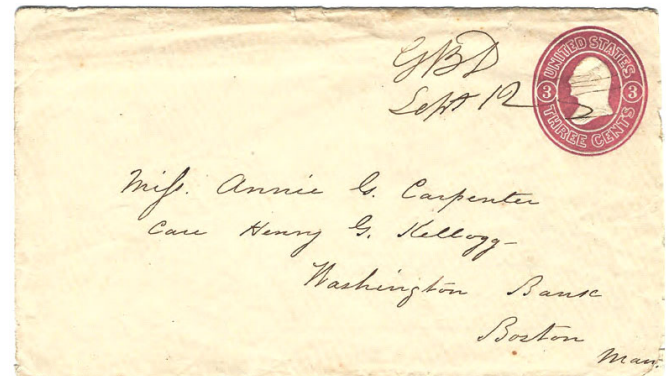 GBD
Sept 12
UNITED STATES
3 3
THREE CENTS
Miss. Annie G. Carpenter
Care Henry G. Kellogg
Washington Bank
Boston
Mass.